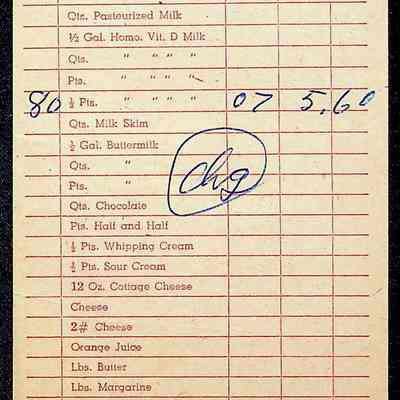 Qts. Pasteurized Milk
½ Gal. Homo. Vit. D Milk
Qts. " " " "
Pts. " " " "
80 ½ Pts. " " " " 07 5.60
Qts. Milk Skim
½ Gal. Buttermilk
Qts. "
Pts. "
chg
Qts. Chocolate
Pts. Half and Half
½ Pts. Whipping Cream
½ Pts. Sour Cream
12 Oz. Cottage Cheese
Cheese
2# Cheese
Orange Juice
Lbs. Butter
Lbs. Margarine